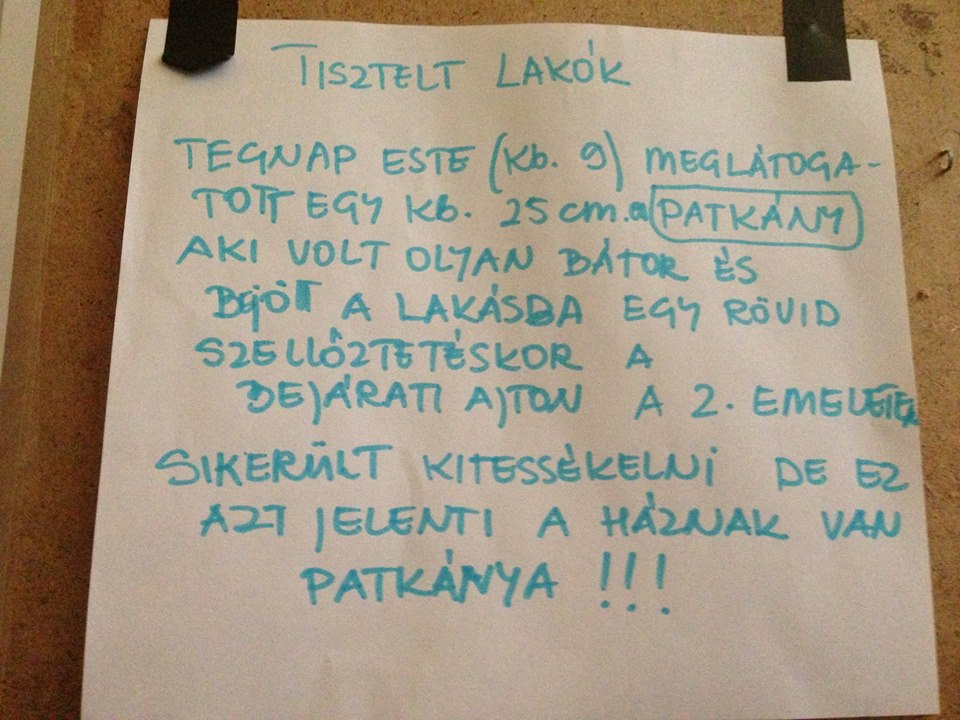 TISZTELT LAKÓK
TEGNAP ESTE (Kb. 9) MEGLÁTOGA-
TOTT EGY Kb. 25 cm.a PATKÁNY
AKI VOLT OLYAN BÁTOR ÉS
BEJÖTT A LAKÁSBA EGY RÖVID
SZELLŐZTETÉSKOR A
BEJÁRATI AJTON A 2. EMELETEN
SIKERÜLT KITESSÉKELNI DE EZ
AZT JELENTI A HÁZNAK VAN
PATKÁNYA !!!